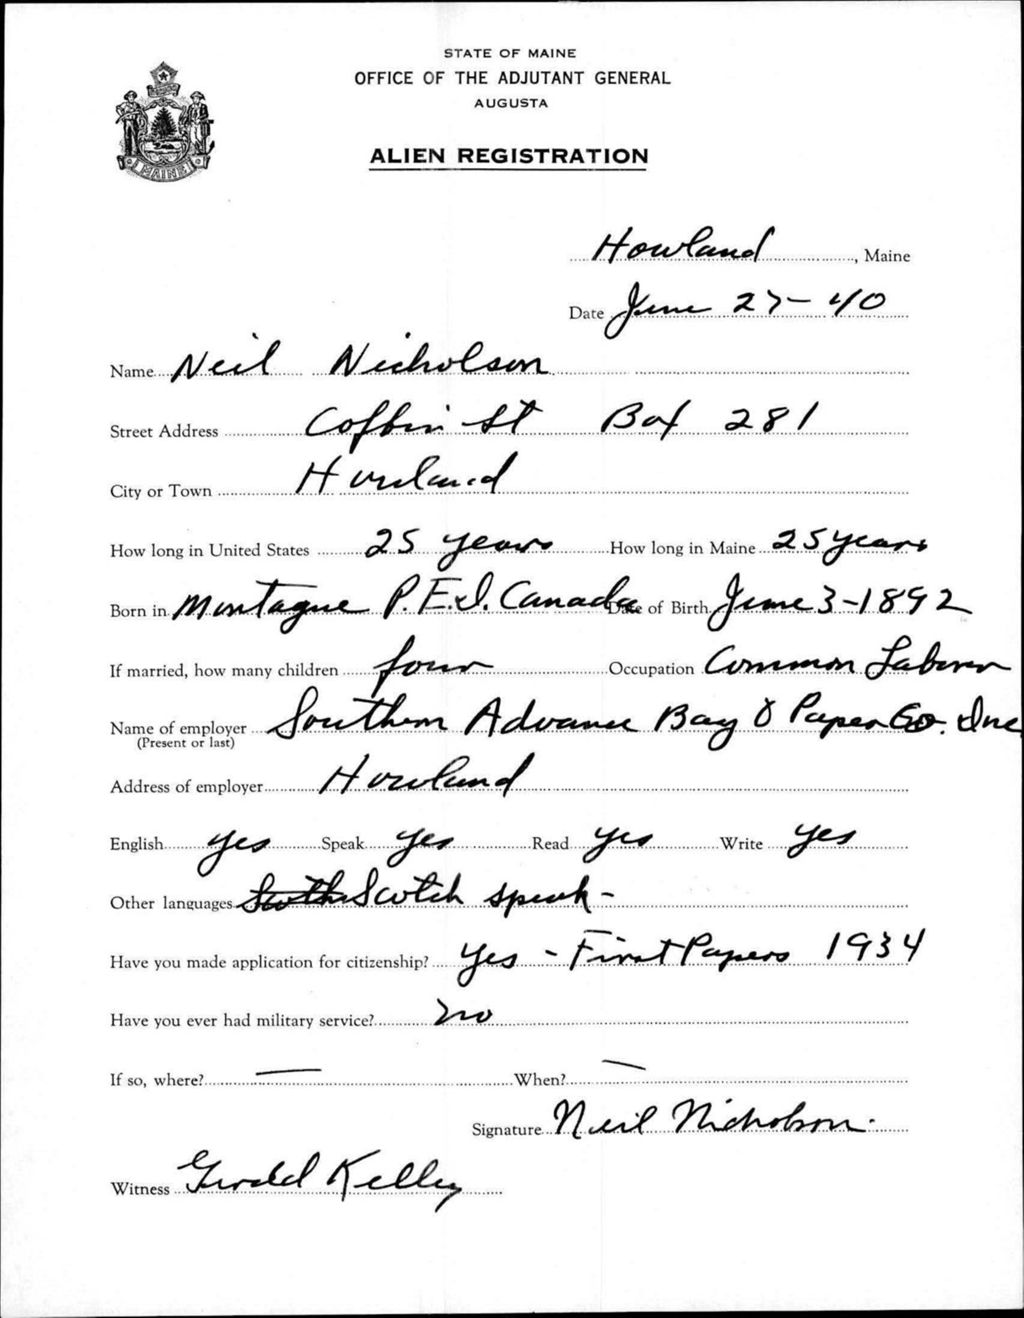 STATE OF MAINE
OFFICE OF THE ADJUTANT GENERAL
AUGUSTA
ALIEN REGISTRATION
MAINE
Howland, Maine
Date June 27-40
Name Neil Nicholson
Street Address Coffin St Box 281
City or Town Howland
How long in United States 25 years How long in Maine 25 years
Born in Montague P.E.I. Canada Date of Birth June 3-1892
If married, how many children four Occupation Common Laborer
Name of employer Southern Advance Bag & Paper Co. Inc
(Present or last)
Address of employer Howland
English yes Speak yes Read yes Write yes
Other languages Scotch speak -
Have you made application for citizenship? Yes - First Papers 1934
Have you ever had military service? no
If so, where? — When? —
Signature Neil Nicholson.
Witness Gerald Kelley